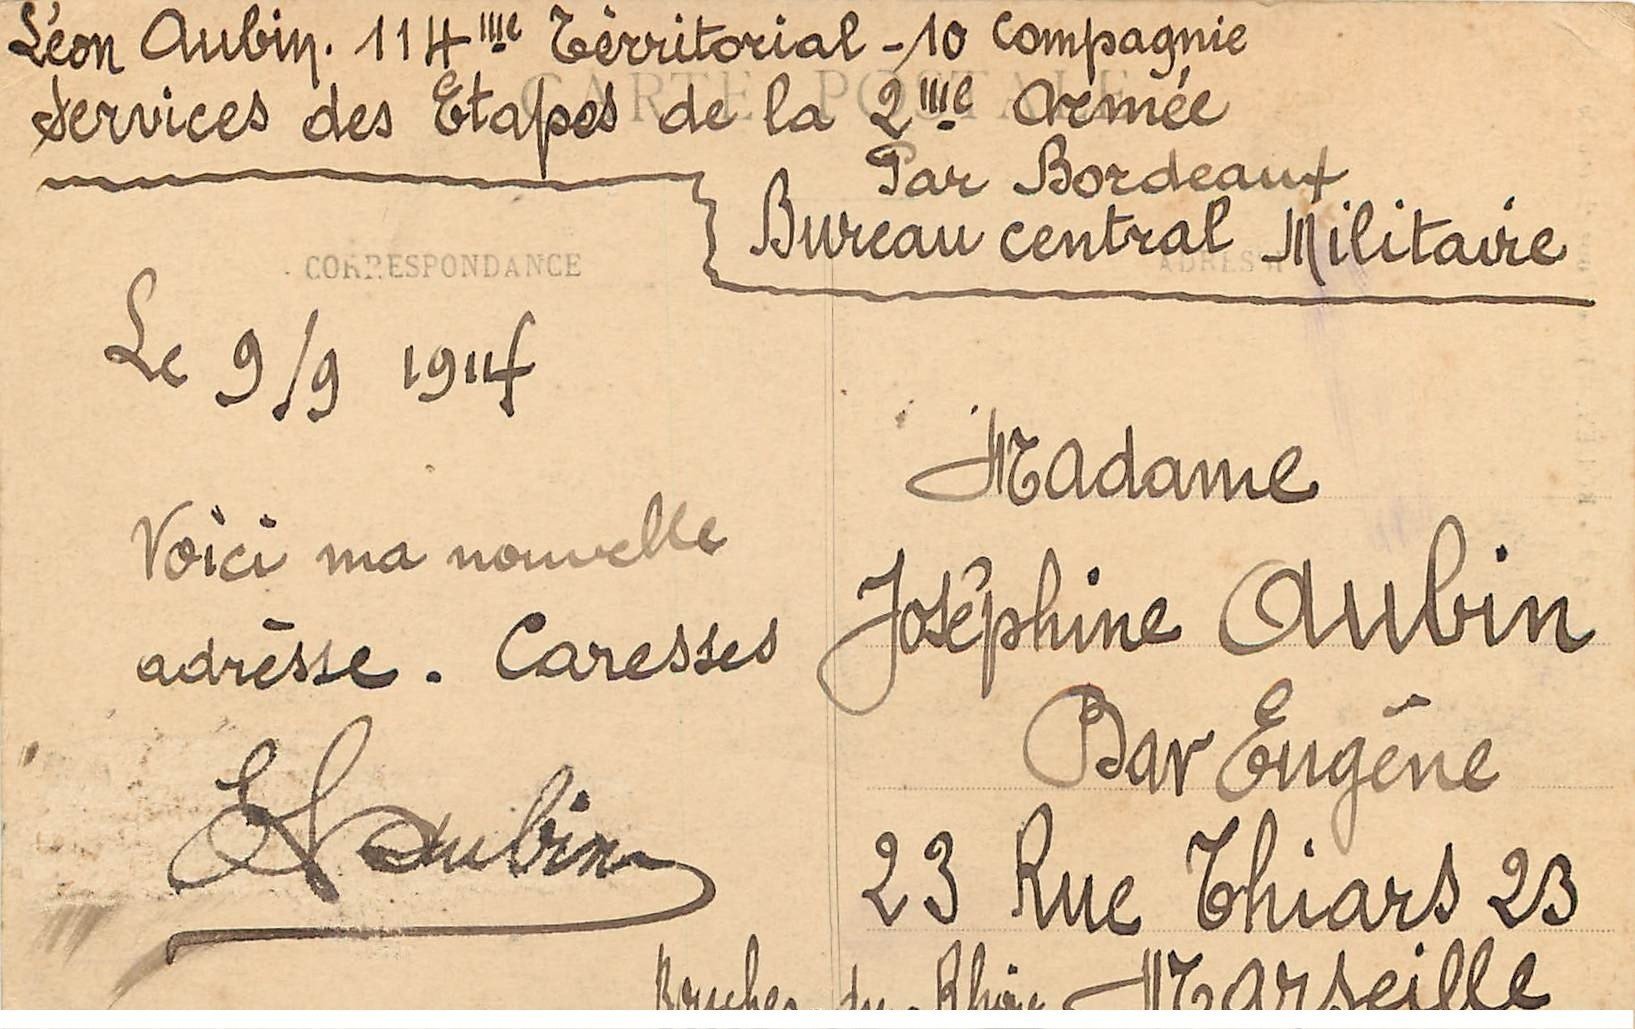 Léon Aubin. 114ᵐᵉ Térritorial - 10 Compagnie
CARTE POSTALE
Services des Etapes de la 2ᵐᵉ Armée
Par Bordeaux
Bureau central Militaire
CORRESPONDANCE
ADRESSE
Le 9/9 1914
Voici ma nouvelle
adrèsse. Caresses
Aubin
Madame
Joséphine Aubin
Bar Eugêne
23 Rue Thiars 23
Bouches du Rhône Marseille